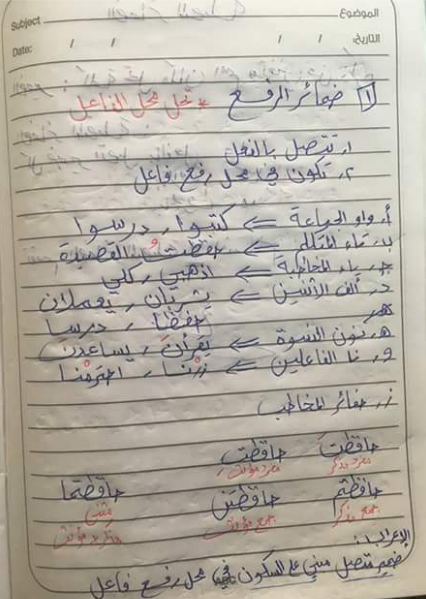 Subject الموضوع
Date: / / التاريخ: / /
[1] ضمائر الرفع * تحل محل الفاعل
١. تتصل بالفعل
٢. تكون في محل رفع فاعل
أ. واو الجماعة ⇐ كتبوا، درسوا
ب. تاء المتكلم ⇐ حفظتُ القصيدة
جـ. ياء المخاطبة ⇐ اذهبي، كلي
د. ألف الاثنين ⇐ يشربان، يعملان
حفظا، درسا
هـ. نون النسوة ⇐ يقرأن، يساعدن
و. نا الفاعلين ⇐ زرْنا، احترمْنا
ز. ضمائر المخاطب
حافظتَ حافظتِ
مفرد مذكر مفرد مؤنث
حافظتم حافظتن حافظتما
جمع مذكر جمع مؤنث مثنى
مذكر ومؤنث
الإعراب:
ضمير متصل مبني على السكون في محل رفع فاعل